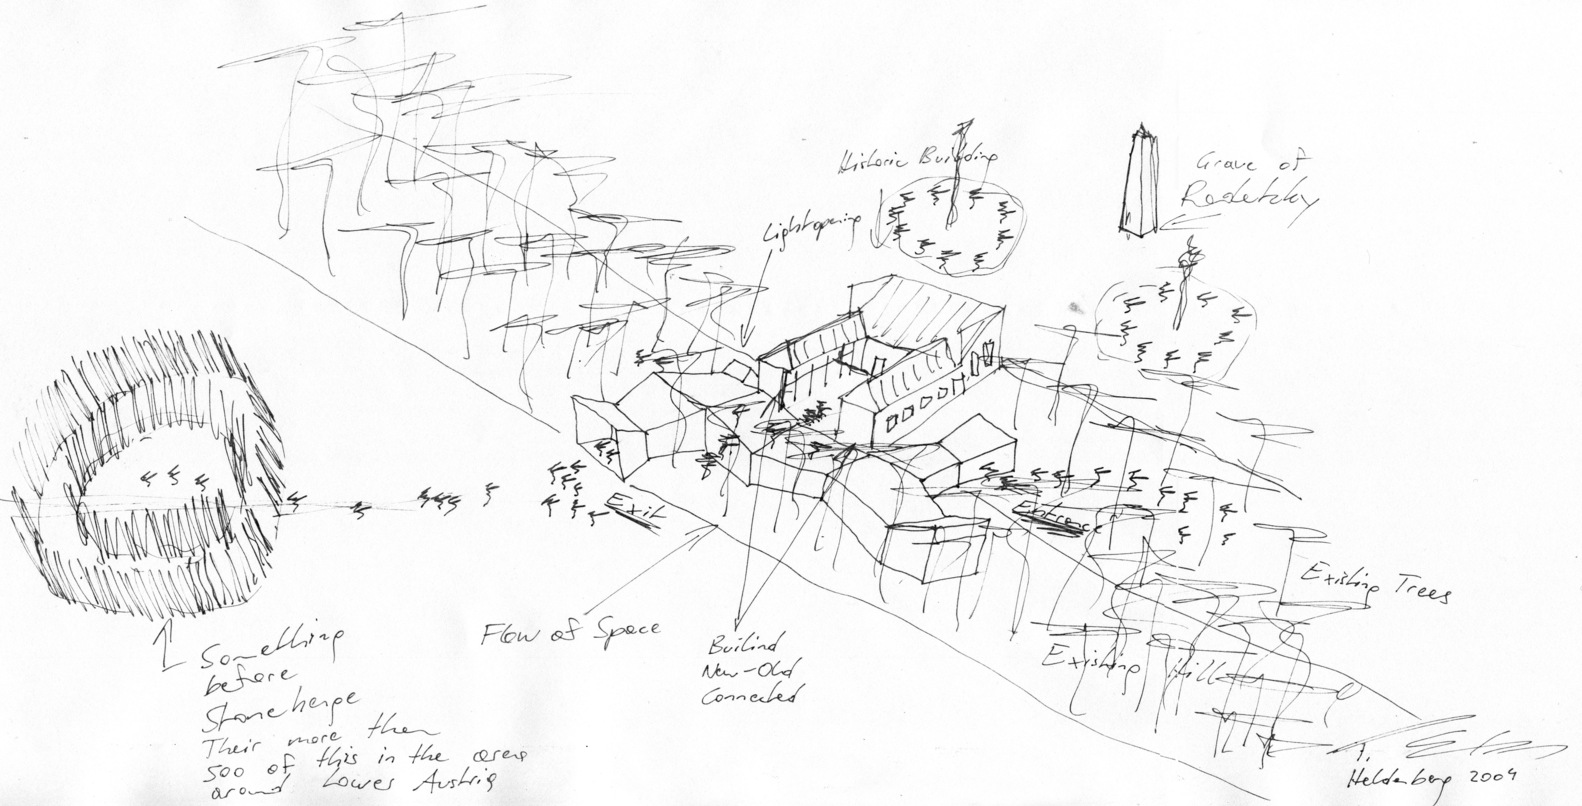 Historic Building
Grave of
Radetzky
Lightopening
Exit
Entrance
Existing Trees
Existing Hill
Flow of Space
Builind
New-Old
Connected
Something
before
Stonehenge
Their more then
500 of this in the area
around Lower Austria
Heldenberg 2004